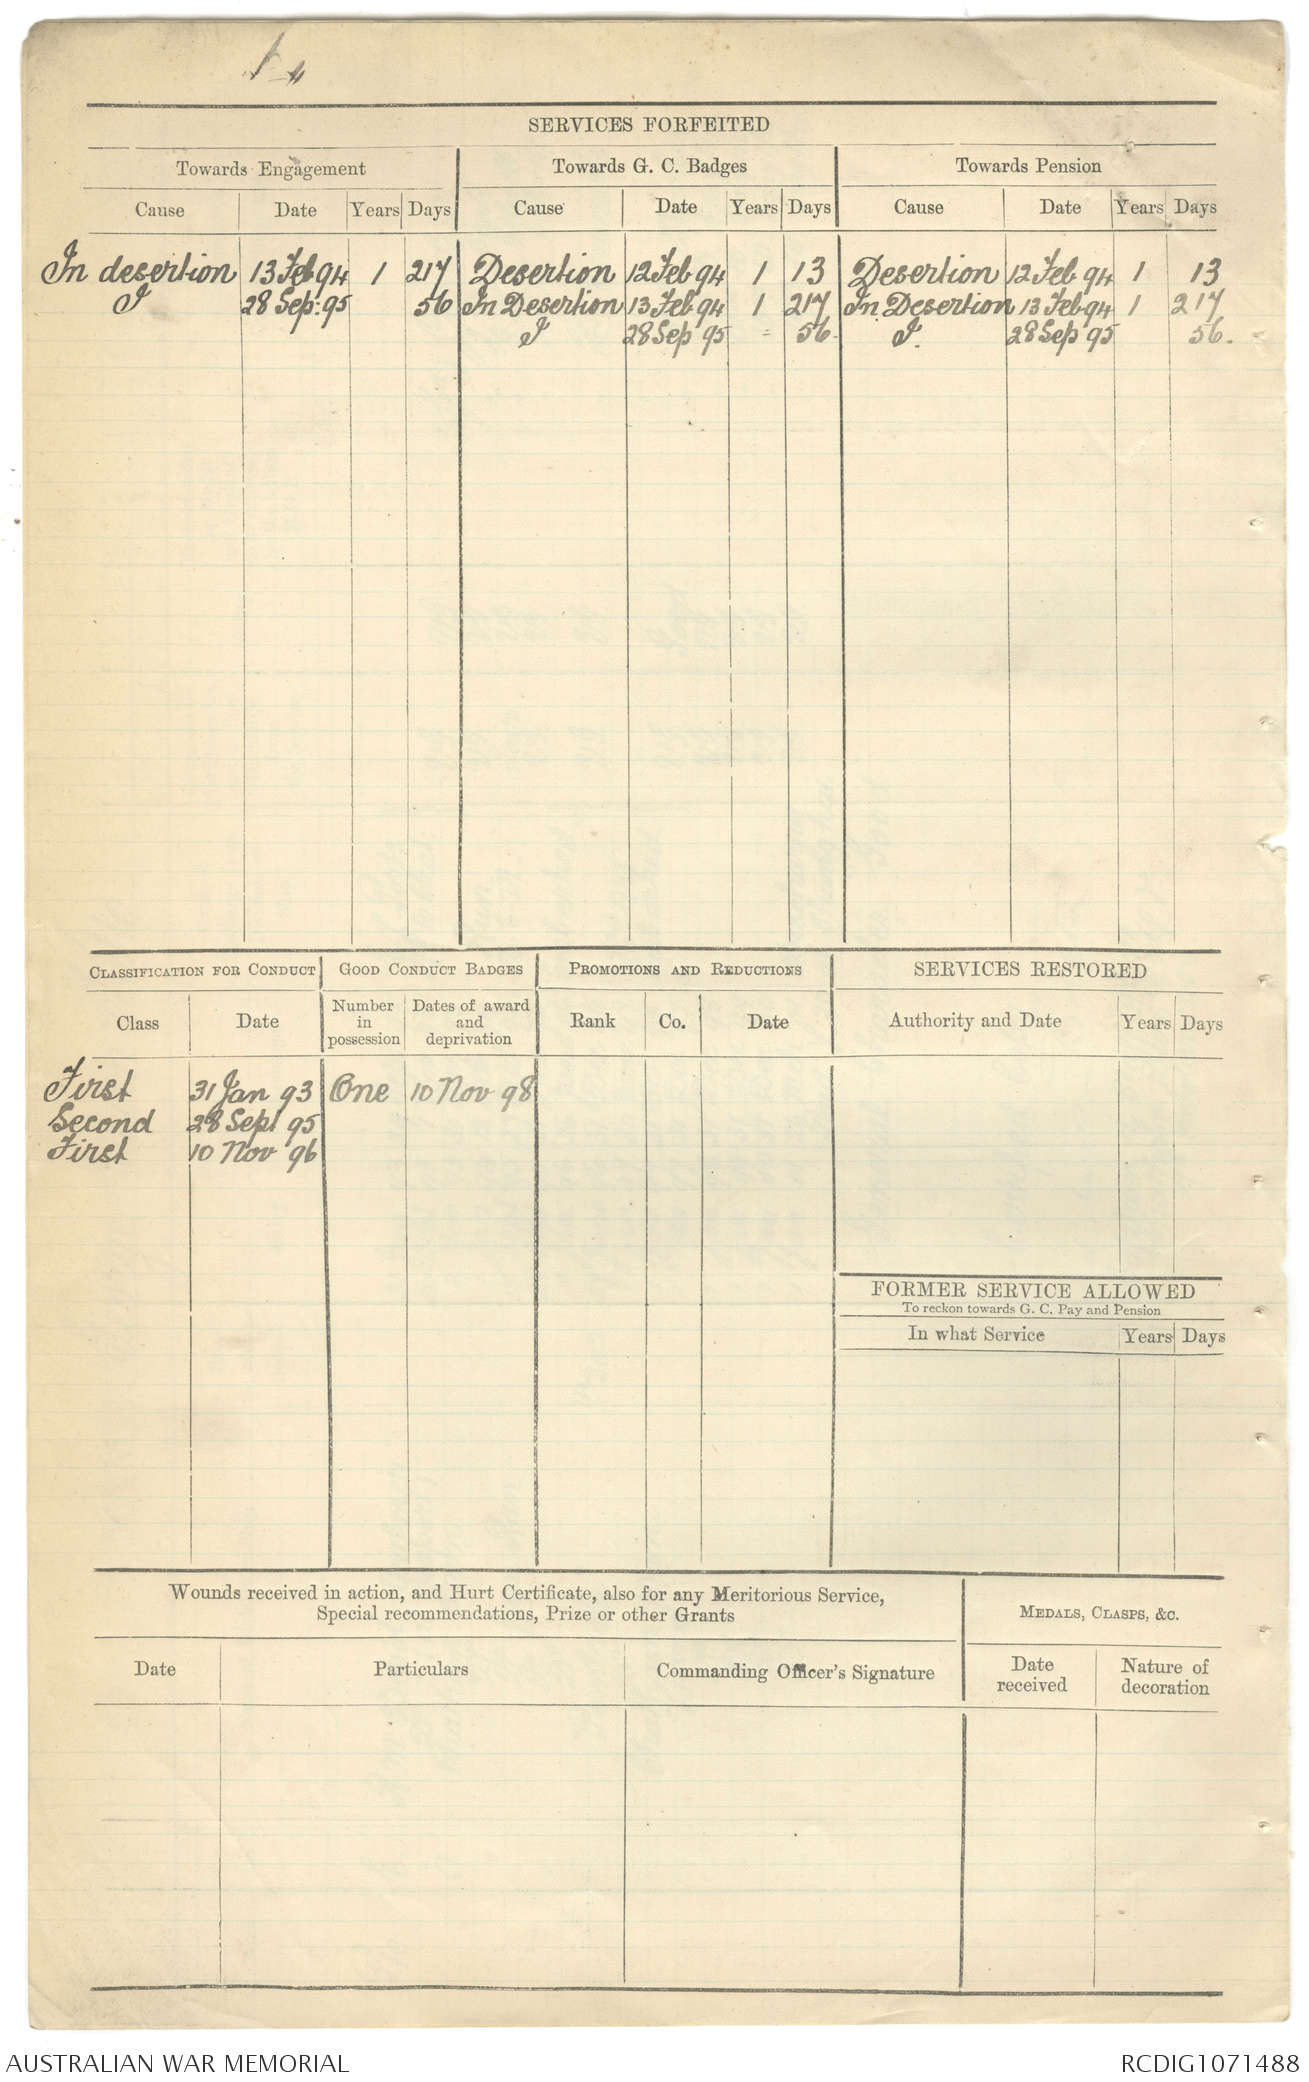 SERVICES FORFEITED
Towards Engagement Towards G. C. Badges Towards Pension
Cause Date Years Days Cause Date Years Days Cause Date Years Days
In desertion 13 Feb 94 1 217 Desertion 12 Feb 94 1 13 Desertion 12 Feb 94 1 13
I 28 Sep: 95 56 In Desertion 13 Feb 94 1 217 In Desertion 13 Feb 94 1 217
I 28 Sep 95 = 56 I. 28 Sep 95 56.
CLASSIFICATION FOR CONDUCT GOOD CONDUCT BADGES PROMOTIONS AND REDUCTIONS SERVICES RESTORED
Class Date Number in possession Dates of award and deprivation Rank Co. Date Authority and Date Years Days
First 31 Jan 93 One 10 Nov 98
Second 28 Sept 95
First 10 Nov 96
FORMER SERVICE ALLOWED
To reckon towards G. C. Pay and Pension
In what Service Years Days
Wounds received in action, and Hurt Certificate, also for any Meritorious Service,
Special recommendations, Prize or other Grants
MEDALS, CLASPS, &C.
Date Particulars Commanding Officer's Signature Date received Nature of decoration
AUSTRALIAN WAR MEMORIAL RCDIG1071488